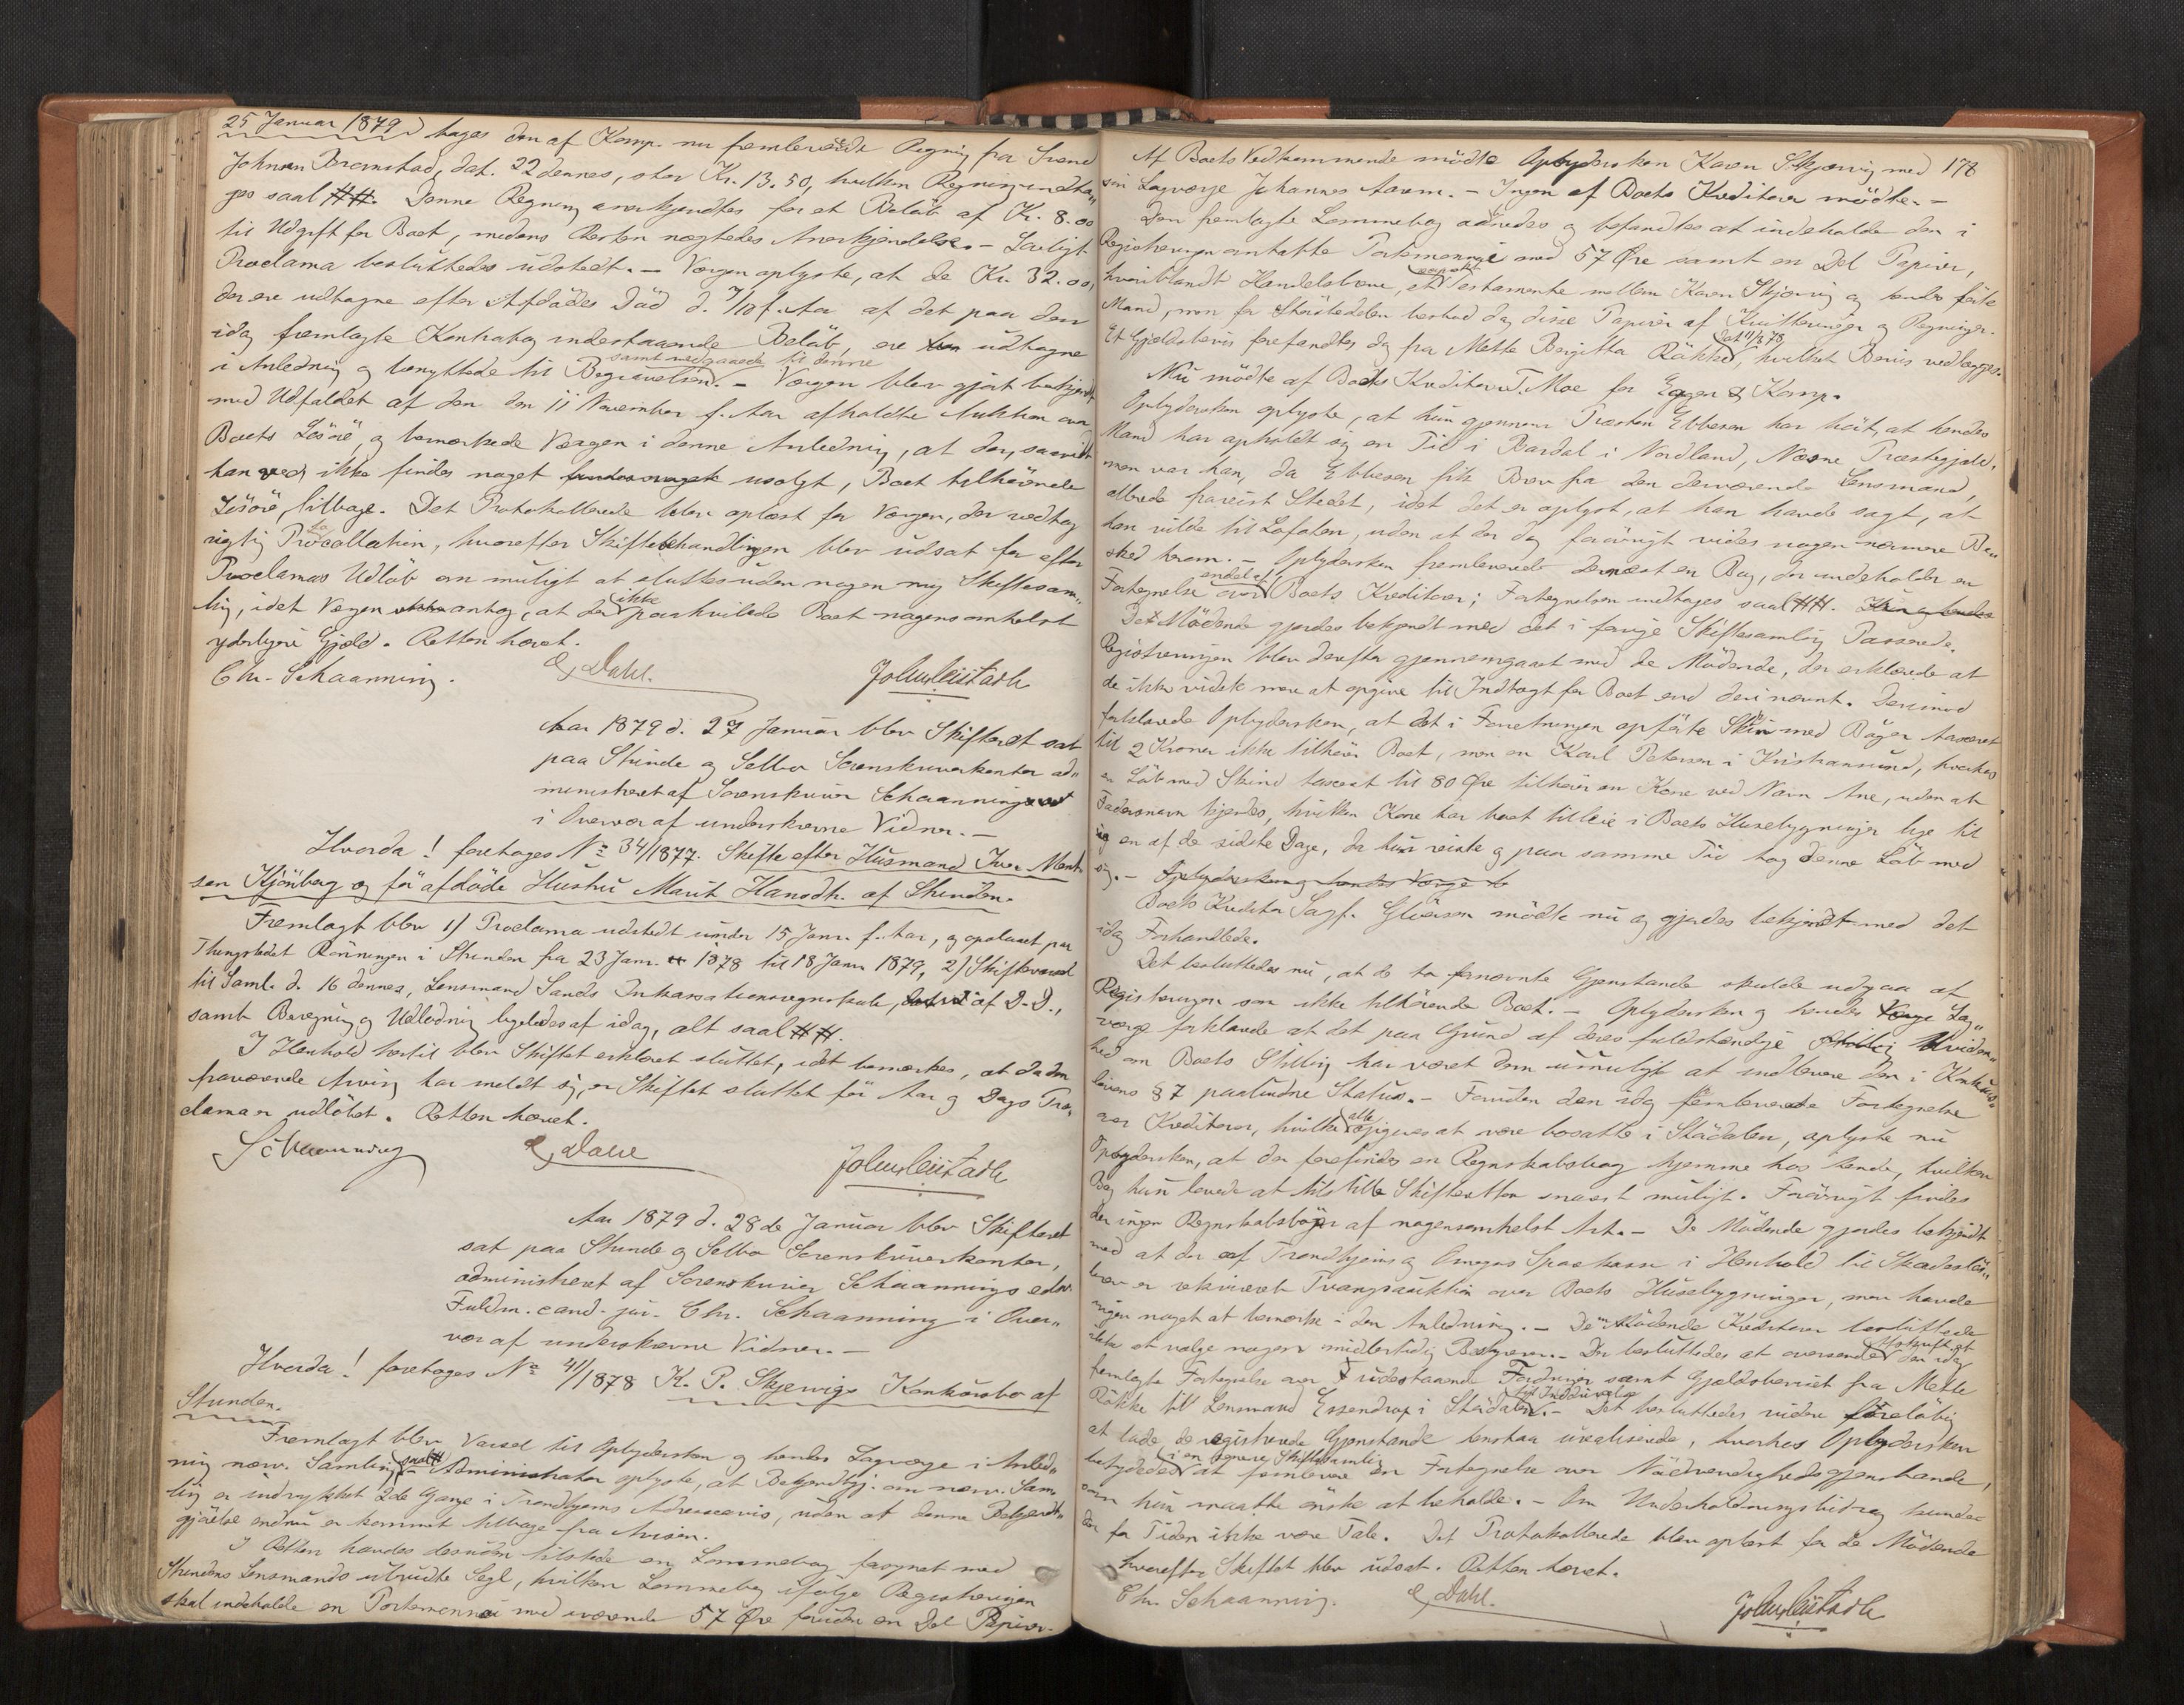 25 Januar 1879
tages den af Komp. nu fremleverede Regning fra Svend
Johnsen Bromstad, dat. 22 dennes, stor Kr. 13.50, hvilken Regning indta„
ges saal. ##. Denne Regning anerkjendtes for et Beløb af Kr. 8.00
til Udgift for Boet, medens Resten negtedes Anerkjendelse. – Lovligt
Proclama besluttedes udstedt. – Værgen oplyste, at de Kr. 32.00,
der ere udtagne efter Afdødes Død d. 7/10 f. Aar af det paa den
idag fremlagte Kontrabog indestaaende Beløb, ere udtagne
samt medgaaede til denne
i Anledning og benyttede til Begravelsen. – Værgen blev gjort bekjendt
med Udfaldet af den den 11 November f. Aar afholdte Auktion over
Boets Løsøre, og bemærkede Værgen i denne Anledning, at der, saavidt
han ved, ikke findes noget usolgt, Boet tilhørende
Løsøre, tilbage. Det Protokollerede blev oplæst for Værgen, der vedtog
rigtig Protocollation, hvorefter Skiftebehandlingen blev udsat for efter
Proclamas Udløb om muligt at sluttes uden nogen ny Skiftesam„
ikke
ling, idet Værgen antog, at der paahvilede Boet nogensomhelst
yderligere Gjæld. Retten hævet.
Chr. Schaanning. E. Dahl. John Leistad
Aar 1879 d. 27 Januar blev Skifteret sat
paa Strinde og Selbo Sorenskriverkontor ad„
ministreret af Sorenskriver Schaanning
i Overvær af underskrevne Vidner. –
Hvorda! foretoges No 34/1877. Skifte efter Husmand Iver Mort
sen Kjønberg og før afdøde Hustru Marit Hansdtr. af Strinden.
Fremlagt blev 1) Proclama udstedt under 15 Janr. f. Aar, og opslaaet paa
Thingstedet Rønningen i Strinden fra 23 Janr. 1878 til 18 Janr 1879, 2) Skiftevarsel
til Saml. d. 16 dennes, Lensmand Sands Inkassationsregnskab, af D.D.,
samt Beregning og Udlodning ligeledes af idag, alt saal. ##.
I Henhold hertil blev Skiftet erklæret sluttet, idet bemærkes, at da den
fraværende Arving har meldt sig, er Skiftet sluttet før Aar og Dags Pro„
clama er udløbet. Retten hævet.
Schaanning E. Dahl John Leistad
Aar 1879 d. 28de Januar blev Skifteret
sat paa Strinde og Selbo Sorenskriverkontor,
administreret af Sorenskriver Schaannings edsv.
Fuldm. cand. jur. Chr. Schaanning i Over„
vær af underskrevne Vidner. –
Hvorda! foretoges No 41/1878 K. P. Skjervigs Konkursbo af
Strinden.
Fremlagt blev Varsel til Opbydersken og hendes Lagværge i Anled„
saal. #
ning nærv. Samling. – Administrator oplyste, at Bekjendtgj. om nærv. Sam„
ling er indrykket 2de Gange i Trondhjems Adresseavis, uden at denne Bekjendt„
gjørelse endnu er kommet tilbage fra Avisen.
I Retten havdes desuden tilstede en Lommebog forsynet med
Strindens Lensmands ubrudte Segl, hvilken Lommebog ifølge Registreringen
skal indeholde en Portemonnai med iværende 57 Øre foruden en Del Papirer.
178
Af Boets Vedkommende mødte Opbydersken Karen Skjervig med
sin Lagværge Johannes Aarem. – Ingen af Boets Kreditorer mødte. –
Den fremlagte Lommebog aabnedes og befandtes at indeholde den i
Registreringen omtalte Portemonnai med 57 Øre samt en Del Papirer,
hvoriblandt Handelsbrev, et Testamente mellem Karen Skjervig og hendes første
Mand, men for Størstedelen bestod dog disse Papirer af Kvitteringer og Regninger.
dat 11/3 78
Et Gjældsbevis forefandtes dog fra Mette Bergitta Røkke, hvilket Bevis vedlægges.
Nu mødte af Boets Kreditorer T. Moe for Egger & Komp.
Opbydersken oplyste, at hun gjennem Præsten Ebbesen har hørt, at hendes
Mand har opholdt sig en Tid i Bardal i Nordland, Næsne Præstegjeld,
men var han, da Ebbesen fik Brev fra den derværende Lensmand,
allerede frareist Stedet, idet det er oplyst, at han havde sagt, at
han vilde til Lofoten, uden at der dog forøvrigt vides nogen nærmere Be„
sked herom. – Opbydersken fremleverede dernæst en Bog, der indeholder en
endel af
Fortegnelse over Boets Kreditorer; Fortegnelsen indtages saal. ##.
Det Mødende gjordes bekjendt med det i forrige Skiftesamling Passerede.
Registreringen blev derefter gjennemgaaet med de Mødende, der erklærede at
de ikke vidste mere at opgive til Indtægt for Boet end deri nævnt. Derimod
forklarede Opbydersken, at det i Forretningen opførte Skrin med Bøger taxeret
til 2 Kroner ikke tilhører Boet, men en Karl Petersen i Kristiansund, hvorhos
en Løb med Skind taxeret til 80 Øre tilhører en Kone ved Navn Ane, uden at
Fadersnavn kjendes, hvilken Kone har boet tilleie i Boets Husebygninger lige til
en af de sidste Dage, da hun reiste og paa samme Tid tog denne Løb med
sig. –
Boets Kreditor Sagf. Gløersen mødte nu og gjordes bekjendt med det
idag Forhandlede.
Det besluttedes nu, at de to fornævnte Gjenstande skulde udgaa af
Registreringen som ikke tilhørende Boet. – Opbydersken og hendes Lag„
værge forklarede at det paa Grund af deres fuldstændige Uviden„
hed om Boets Stilling har været dem umuligt at indlevere den i Konkurs„
lovens § 7 paabudne Status. – Foruden den idag fremleverede Fortegnelse
alle
over Kreditorer, hvilke opgives at være bosatte i Stødalen, oplyste nu
Opbydersken, at der forefindes en Regnskabsbog hjemme hos hende, hvilken
Bog hun lovede at tilstille Skifteretten snarest muligt. Forøvrigt findes
der ingen Regnskabsbøger af nogensomhelst Art. – De Mødende gjordes bekjendt
med at der af Trondhjems og Omegns Sparekasse i Henhold til Skadesløs„
brev er rekvireret Tvangsauktion over Boets Husebygninger, men havde
ingen noget at bemærke i den Anledning. – De Mødende Kreditorer besluttede
Afskrift af
ikke at vælge nogen midlertidig Bestyrer. – Der besluttedes at oversende den idag
fremlagte Fortegnelse over udestaaende Fordringer samt Gjældsbeviset fra Mette
til Inddrivelse
Røkke til Lensmand Essendrop i Stødalen. – Det besluttedes videre foreløbig
at lade de registrerede Gjenstande henstaa urealiserede, hvorhos Opbydersken
i en senere Skiftesamling
betydedes at fremlevere en Fortegnelse over Nødvendighedsgjenstande,
som hun maatte ønske at beholde. – Om Underholdningsbidrag kunde
der for Tiden ikke være Tale. Det Protokollerede blev oplæst for de Mødende
hvorefter Skiftet blev udsat. Retten hævet.
Chr. Schaanning. E. Dahl. John Leistad